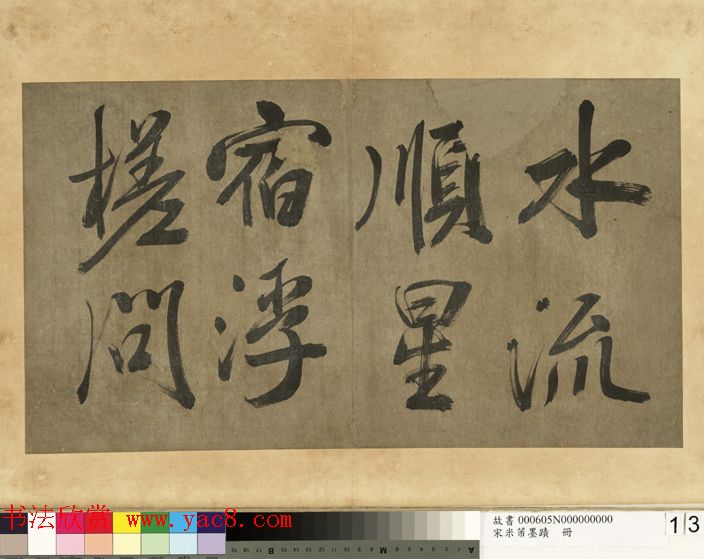 水流
順星
宿浮
槎問
书法欣赏 www.yac8.com
故書 000605N000000000
宋米芾墨蹟 冊
13